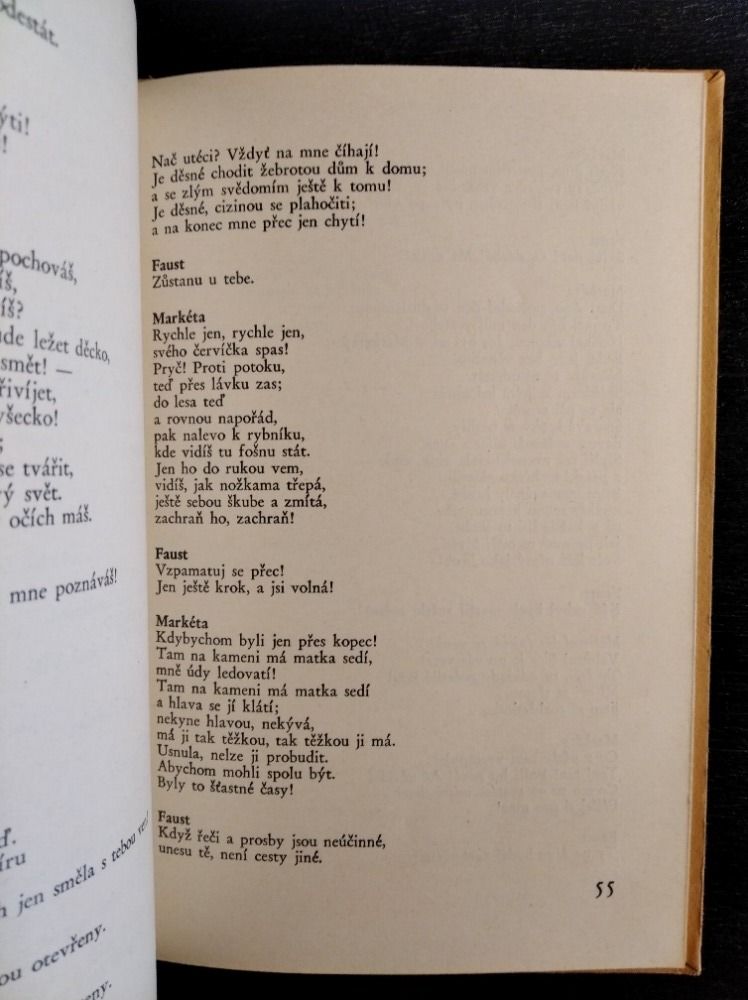 odestát.
ýti!
!
pochováš,
íš,
íš?
de ležet děcko,
smět! —
řivíjet,
všecko!
;
se tvářit,
ý svět.
očích máš.
mne poznáváš!
ď.
íru
jen směla s tebou
ou otevřeny.
eny.
Nač utéci? Vždyť na mne číhají!
Je děsné chodit žebrotou dům k domu;
a se zlým svědomím ještě k tomu!
Je děsné, cizinou se plahočiti;
a na konec mne přec jen chytí!
Faust
Zůstanu u tebe.
Markéta
Rychle jen, rychle jen,
svého červíčka spas!
Pryč! Proti potoku,
teď přes lávku zas;
do lesa teď
a rovnou napořád,
pak nalevo k rybníku,
kde vidíš tu fošnu stát.
Jen ho do rukou vem,
vidíš, jak nožkama třepá,
ještě sebou škube a zmítá,
zachraň ho, zachraň!
Faust
Vzpamatuj se přec!
Jen ještě krok, a jsi volná!
Markéta
Kdybychom byli jen přes kopec!
Tam na kameni má matka sedí,
mně údy ledovatí!
Tam na kameni má matka sedí
a hlava se jí klátí;
nekyne hlavou, nekývá,
má ji tak těžkou, tak těžkou ji má.
Usnula, nelze ji probudit.
Abychom mohli spolu být.
Byly to šťastné časy!
Faust
Když řeči a prosby jsou neúčinné,
unesu tě, není cesty jiné.
55